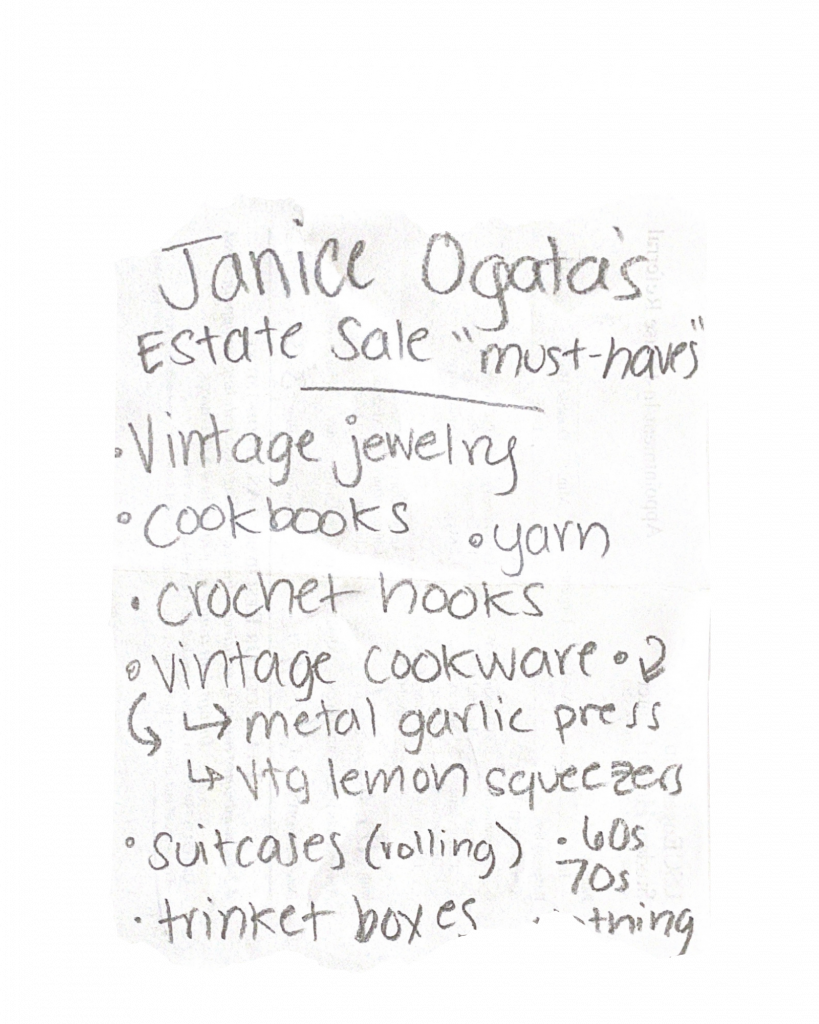 Janice Ogata's
Estate Sale "must-haves"
• Vintage jewelry
• Cookbooks
• yarn
• crochet hooks
• vintage cookware •
↳ metal garlic press
↳ vtg lemon squeezers
• suitcases (rolling)
• 60s
70s
• trinket boxes